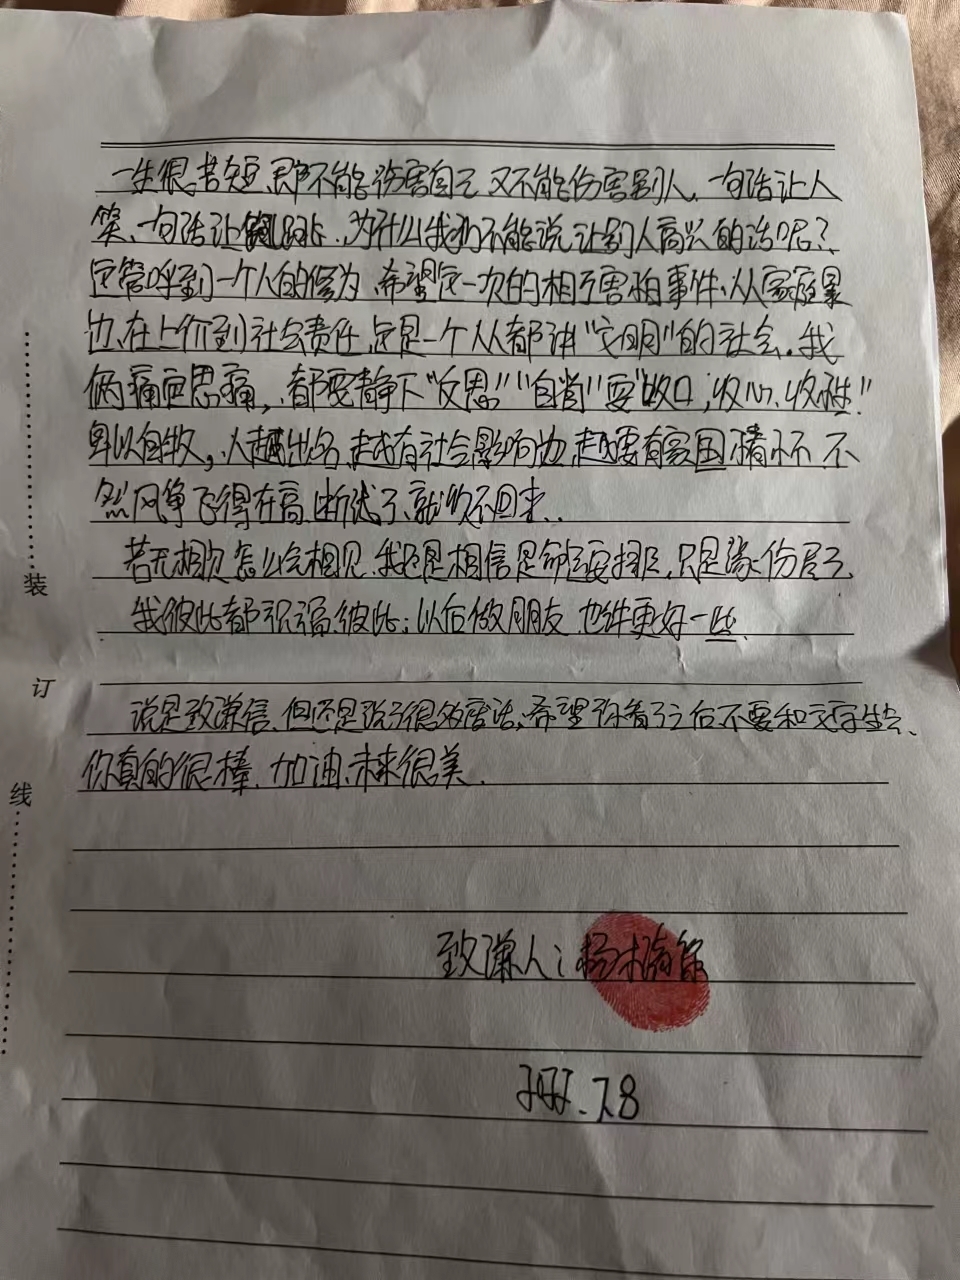 一生很苦短,即不能伤害自己 又不能伤害别人,一句话让人
笑、一句话让 跳、为什么我们不能说让别人高兴的话呢?
这管呼到一个人的修为、希望这一次的相互害怕事件、从家庭
边、在上价到社会责任,这是一个人人都讲"文明"的社会。我
俩痛定思痛,都要静下"反思""自省"要"收口,收心、收性"!
卑以自牧,人越出名、越有社会影响力,越要有家国情怀 不
然风争飞得在高,断线了、就收不回来..
若无相欠怎么会相见、我还是相信是命运安排、只是缘份尽了、
我彼此都祝福彼此;以后做朋友、也许更好一些.
说是致谦信、但还是说了很多废话、希望你看了之后不要和文字生气、
你真的很棒、加油、未来很美.
致谦人:杨
7.8
装
订
线